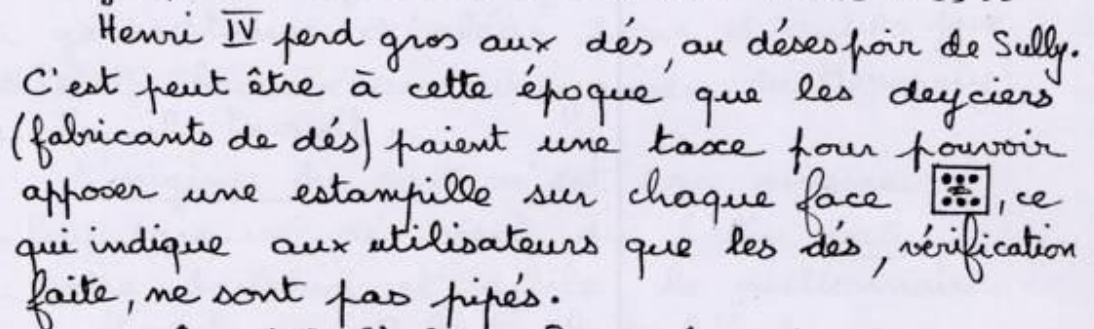 Henri IV perd gros aux dés, au désespoir de Sully.
C'est peut être à cette époque que les deyciers
(fabricants de dés) paient une taxe pour pouvoir
apposer une estampille sur chaque face, ce
qui indique aux utilisateurs que les dés, vérification
faite, ne sont pas pipés.